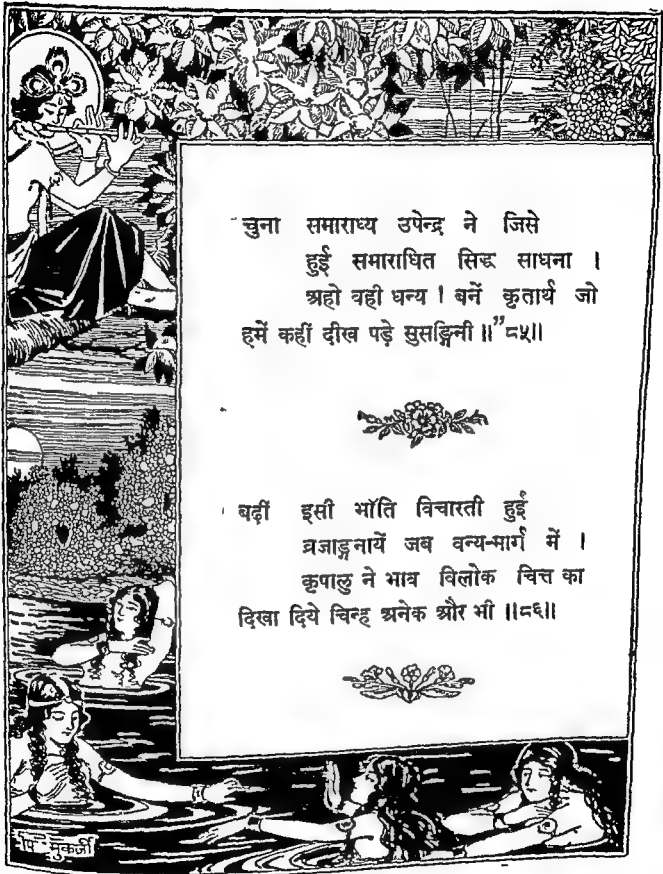 चुना समाराध्य उपेन्द्र ने जिसे
हुई समाराधित सिद्ध साधना ।
अहो वही धन्य ! बनें कृतार्थ जो
हमें कहीं दीख पड़े सुसङ्गिनी ॥”८५॥
बढ़ीं इसी भाँति विचारती हुई
व्रजाङ्गनायें जब वन्य-मार्ग में ।
कृपालु ने भाव विलोक चित्त का
दिखा दिये चिन्ह अनेक और भी ॥८६॥
पि मुकर्जी